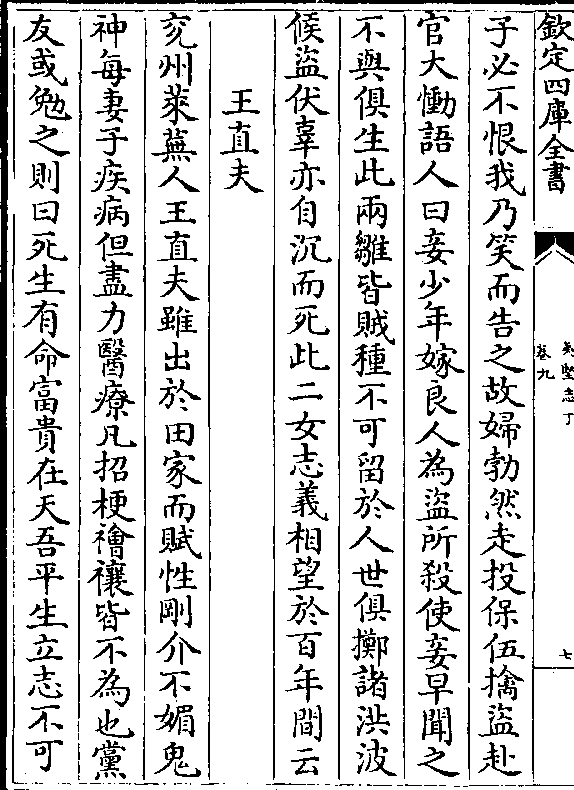 欽定四庫全書
夷堅志丁
卷九
七
子必不恨我乃笑而告之故婦勃然走投保伍擒盜赴
官大慟語人曰妾少年嫁良人為盜所殺使妾早聞之
不與俱生此兩雛皆賊種不可留於人世俱擲諸洪波
候盜伏辜亦自沉而死此二女志義相望於百年間云
王直夫
兖州萊蕪人王直夫雖出於田家而賦性剛介不媚鬼
神每妻子疾病但盡力醫療凡招梗禬禳皆不為也黨
友或勉之則曰死生有命富貴在天吾平生立志不可